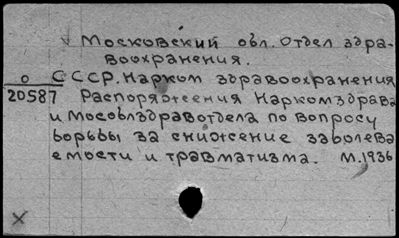 √ Московский обл. отдел здра-
воохранения.
О СССР. Нарком здравоохранения
20587 Распоряжения Наркомздрава
и Мособлздравотдела по вопросу
борьбы за снижение заболева
емости и травматизма. М.1936
×